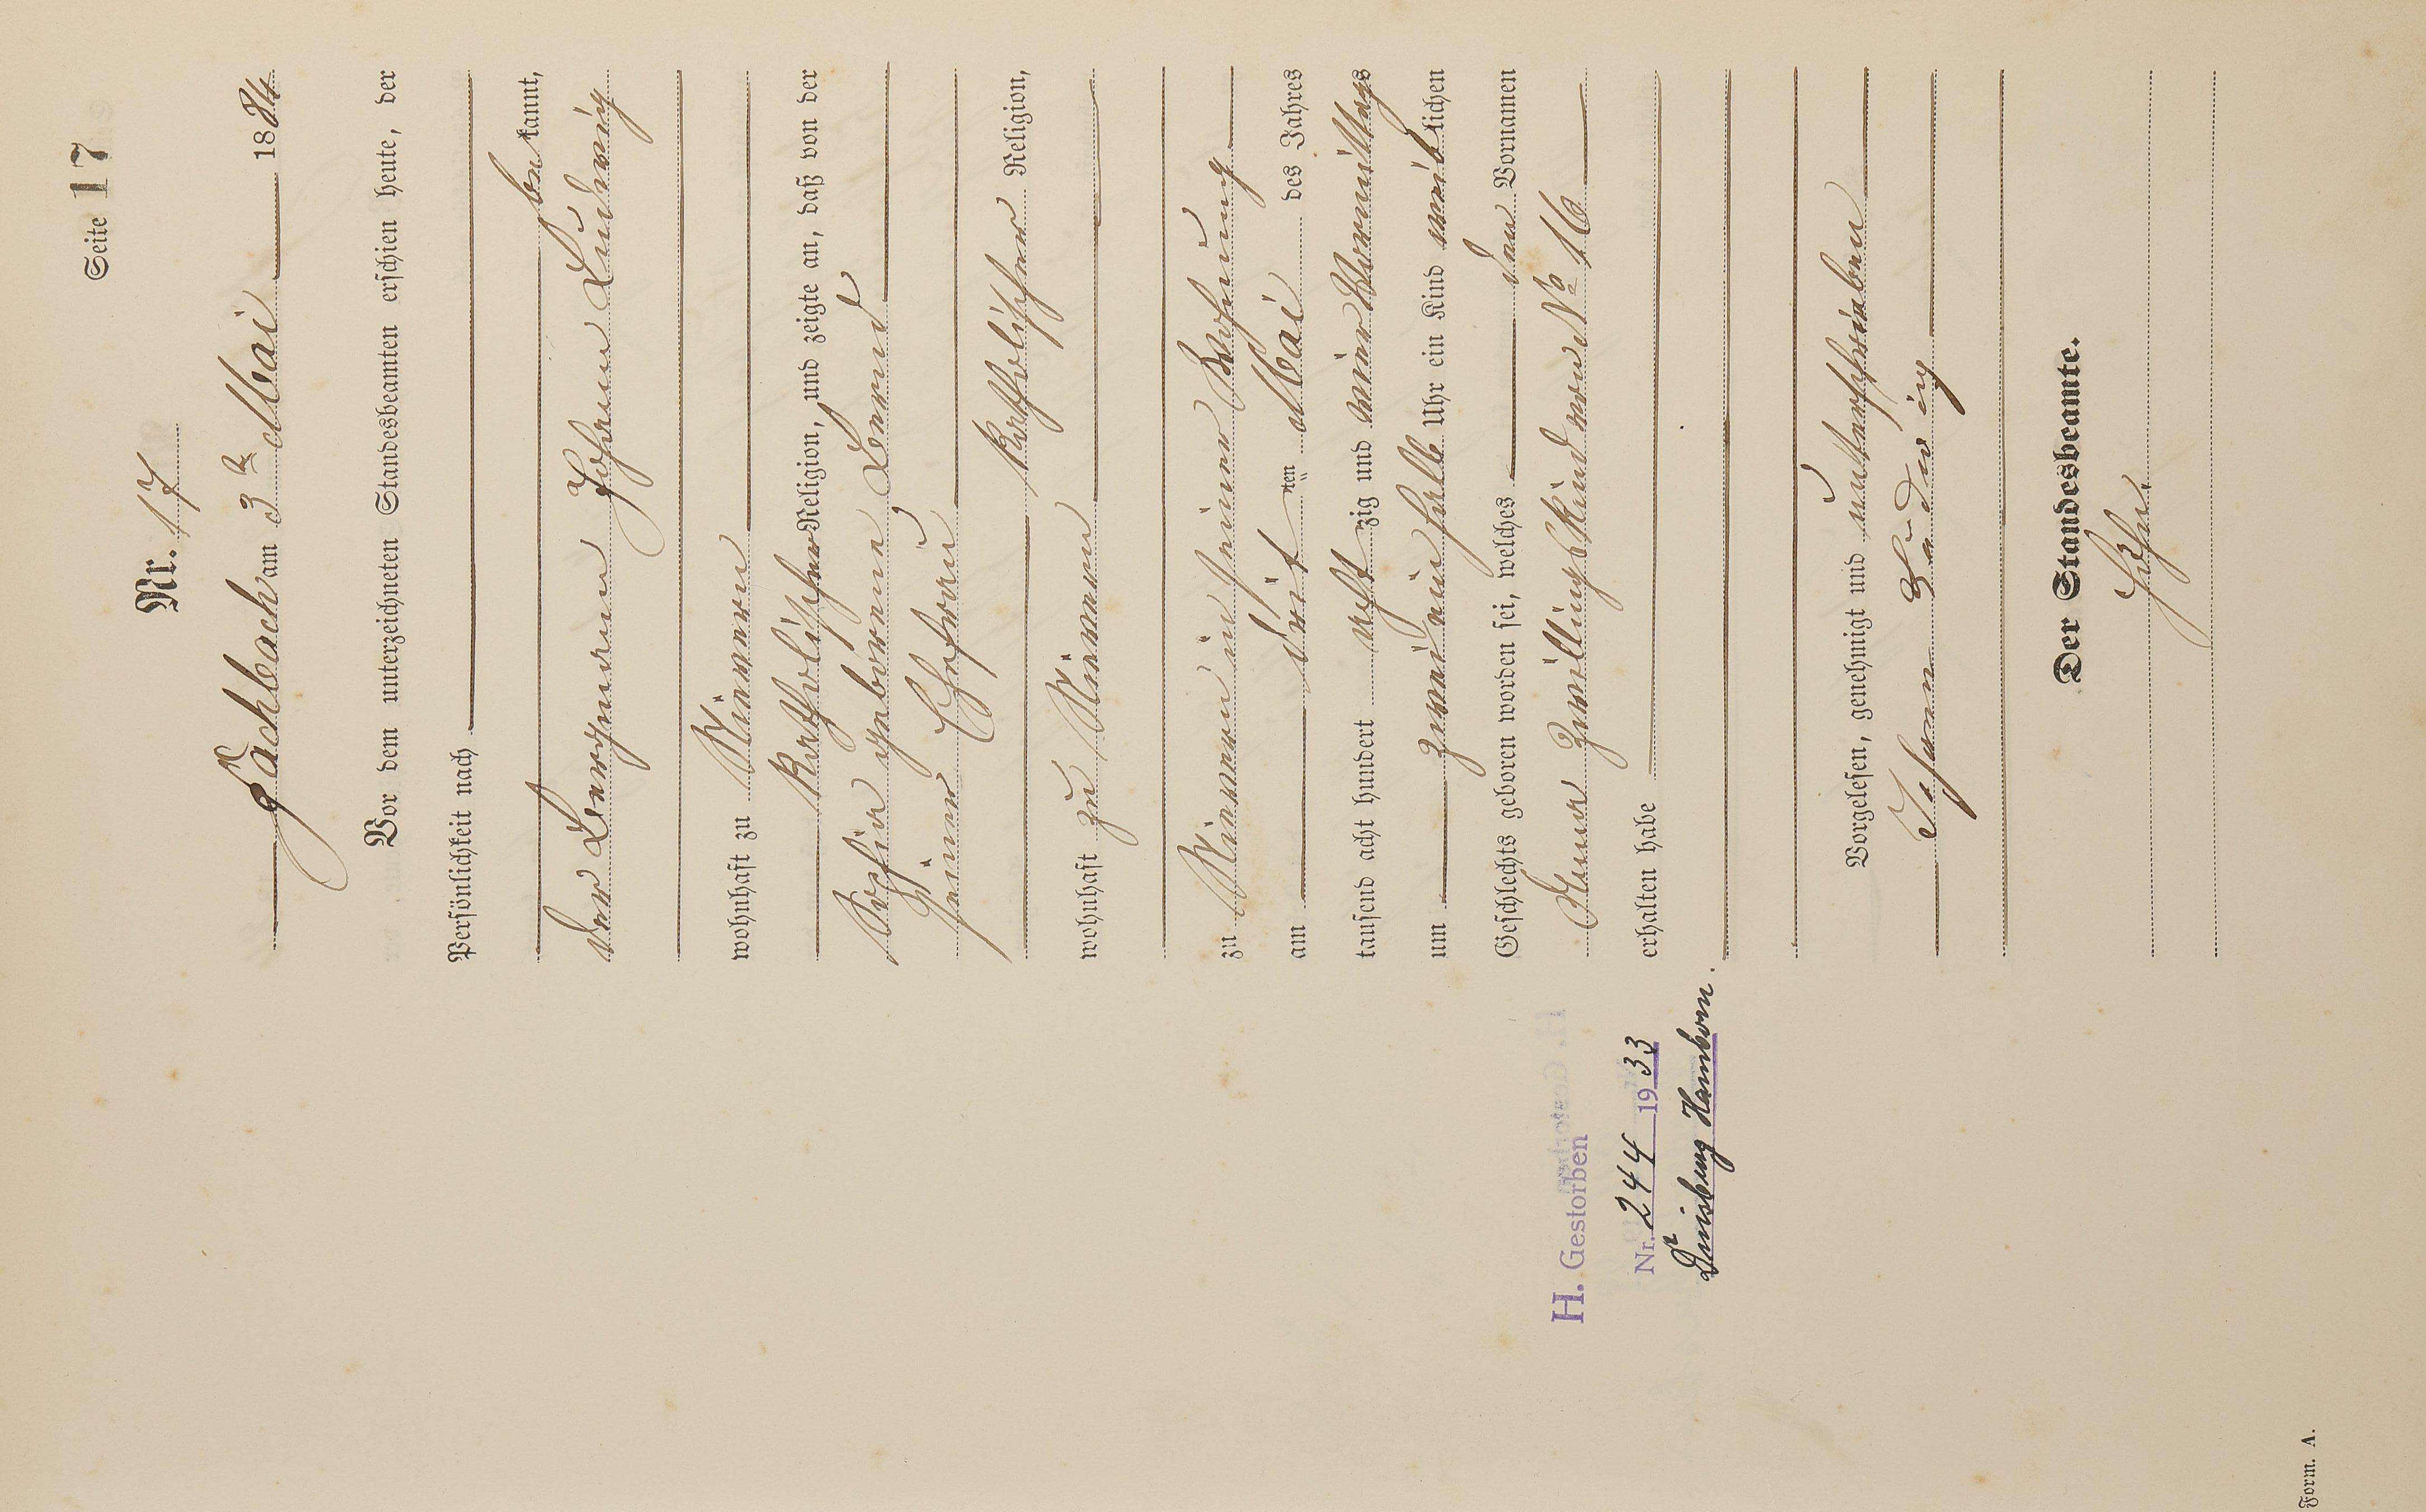 Seite 17
Nr. 17
Fachbach am 3t Mai 1884
Vor dem unterzeichneten Standesbeamten erschien heute, der
Persönlichkeit nach
bekannt,
der Bergmann Johann Ludwig
wohnhaft zu Nievern
katholischer Religion, und zeigte an, daß von der
Sofia geborene
seiner Ehefrau
katholischer Religion,
wohnhaft zu Nievern
zu Nievern in seiner Wohnung
am dritten Mai des Jahres
tausend acht hundert achtzig und vier Vormittags
um zwei ein halb Uhr ein Kind weiblichen
Geschlechts geboren worden sei, welches den Vornamen
Anna Zwillingskind von No 16
erhalten habe
Vorgelesen, genehmigt und unterschrieben
Johann Ludwig
Der Standesbeamte.
H. Gestorben
Nr. 244 1933
Duisburg Hamborn.
Form. A.